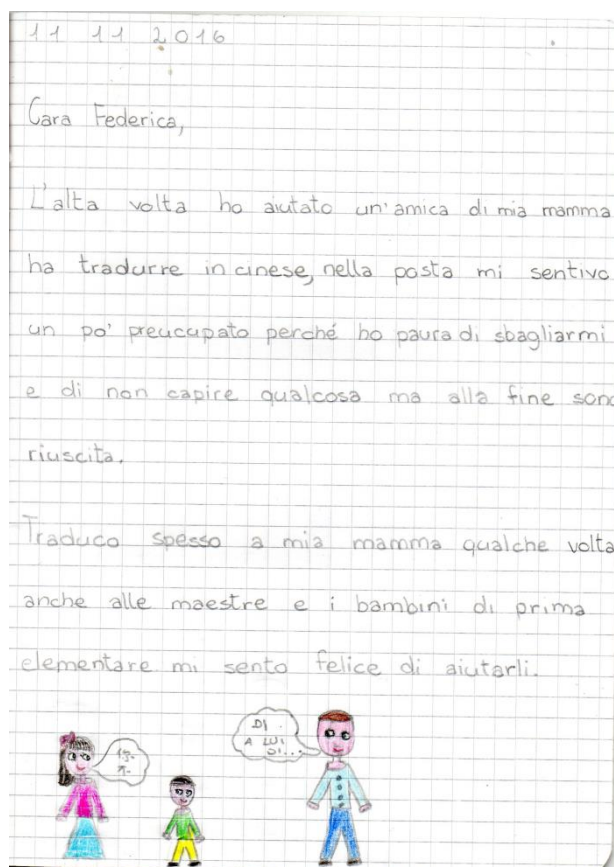 11 11 2016
Cara Federica,
L'alta volta ho aiutato un'amica di mia mamma
ha tradurre in cinese, nella posta mi sentivo
un po' preucupato perché ho paura di sbagliarmi
e di non capire qualcosa ma alla fine sono
riuscita.
Traduco spesso a mia mamma qualche volta
anche alle maestre e i bambini di prima
elementare mi sento felice di aiutarli.
DI
A LUI
DI...